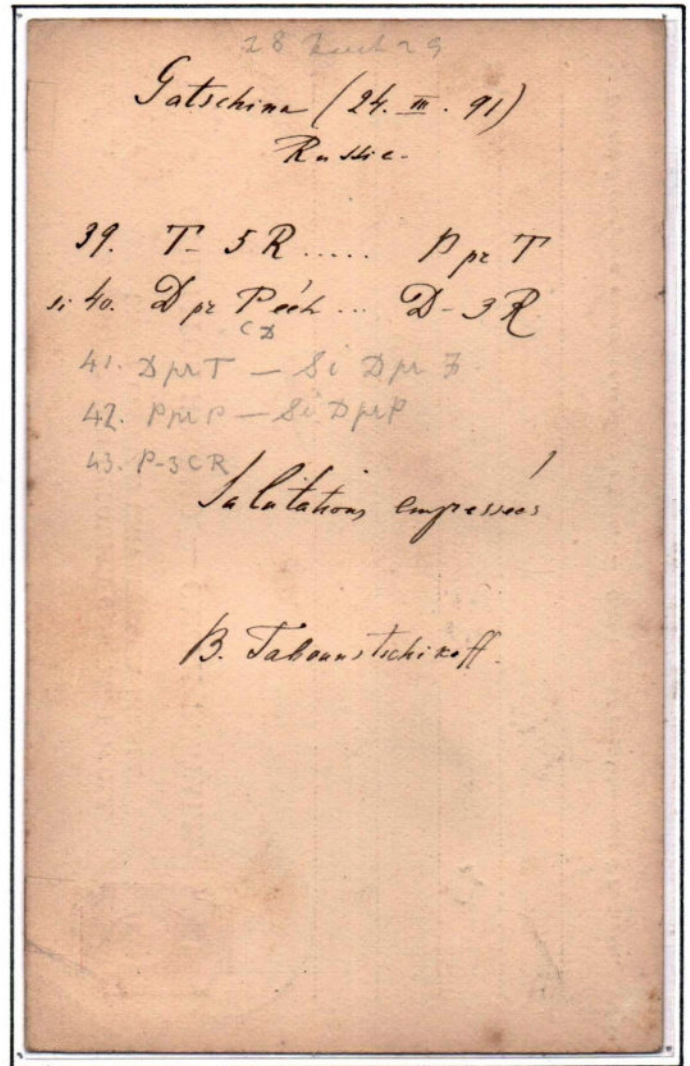 28
Gatschina (24. III. 91)
Russie.
39. T- 5R ..... P pr T
si 40. D pr P éch ... D- 3R
CD
41. D pr T — Si D pr
42. P pr P — Si D pr P
43. P-3CR
Salutations empressées
B. Tabounstschikoff.